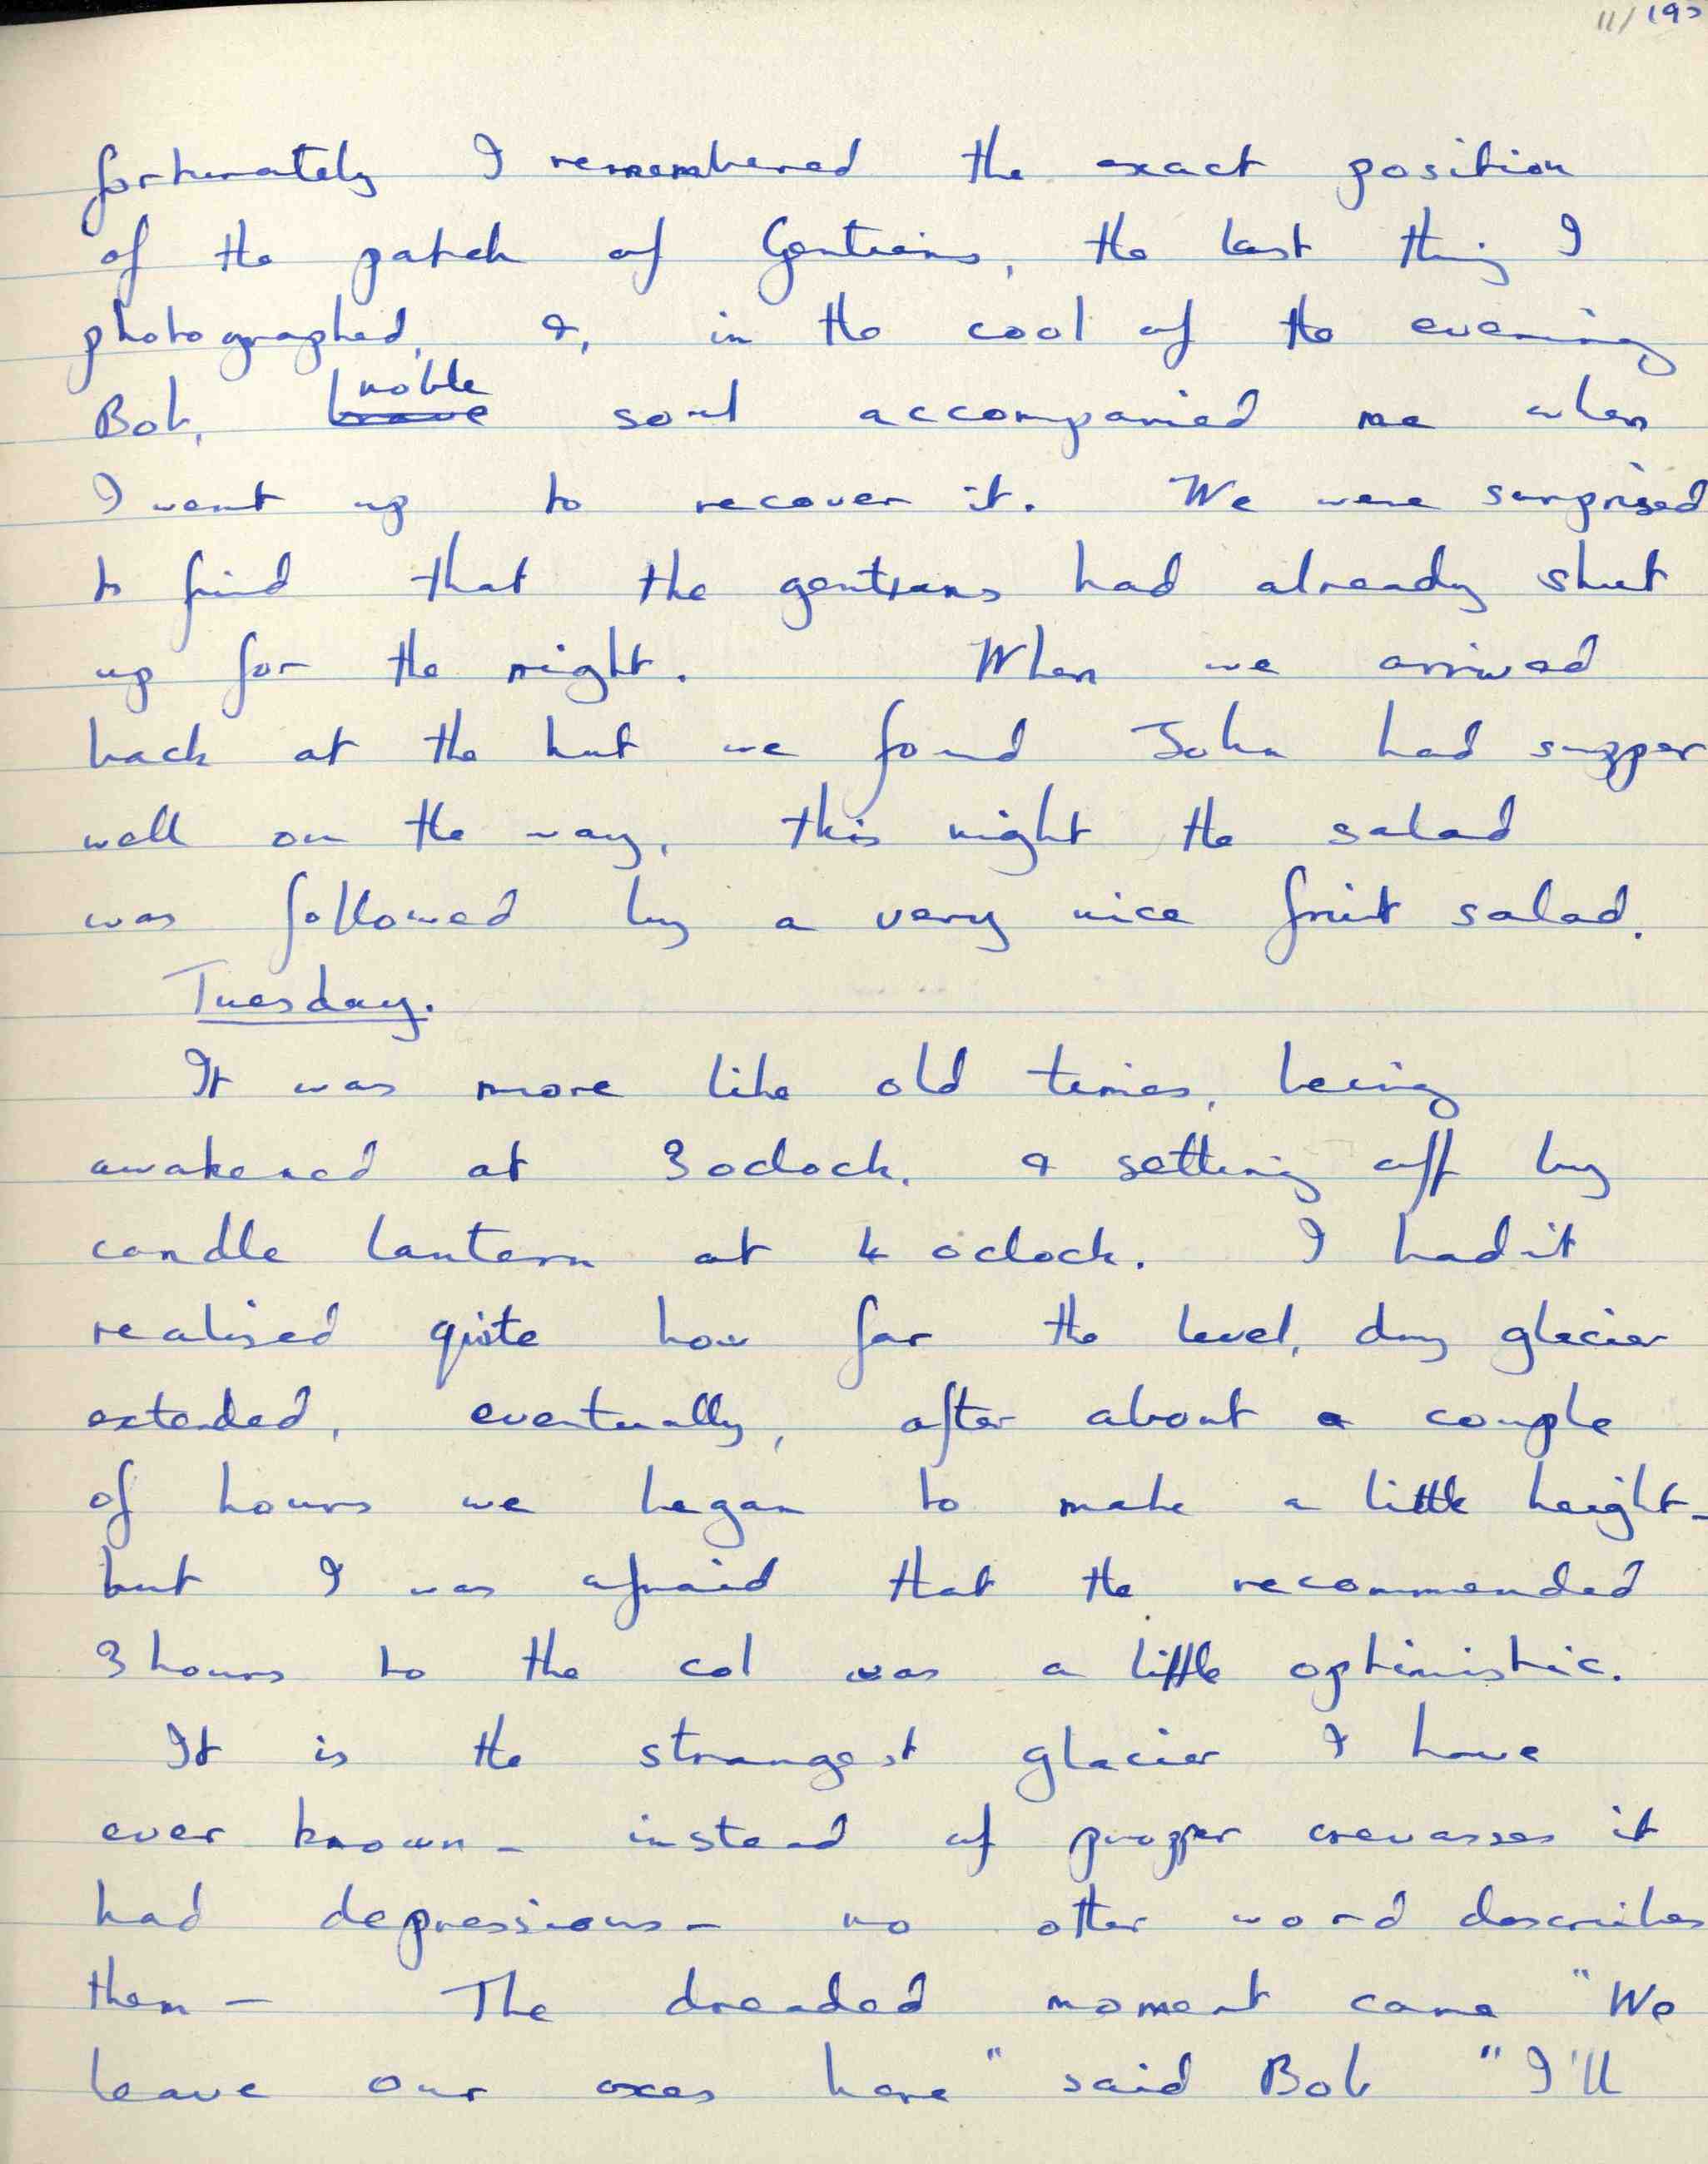 11/193
fortunately I remembered the exact position
of the patch of Gentians, the last thing I
photographed, &, in the cool of the evening
noble
Bob, brave soul accompanied me when
I went up to recover it. We were surprised
to find that the gentians had already shut
up for the night. When we arrived
back at the hut we found John had supper
well on the way, this night the salad
was followed by a very nice fruit salad.
Tuesday.
It was more like old times, being
awakened at 3 oclock, & setting off by
candle lantern at 4 oclock. I hadn't
realised quite how far the level, dry glacier
extended, eventually, after about a couple
of hours we began to make a little height-
but I was afraid that the recommended
3 hours to the col was a little optimistic.
It is the strangest glacier I have
ever known - instead of proper crevasses it
had depressions - no other word describes
them - The dreaded moment came "We
leave our axes here" said Bob "I'll